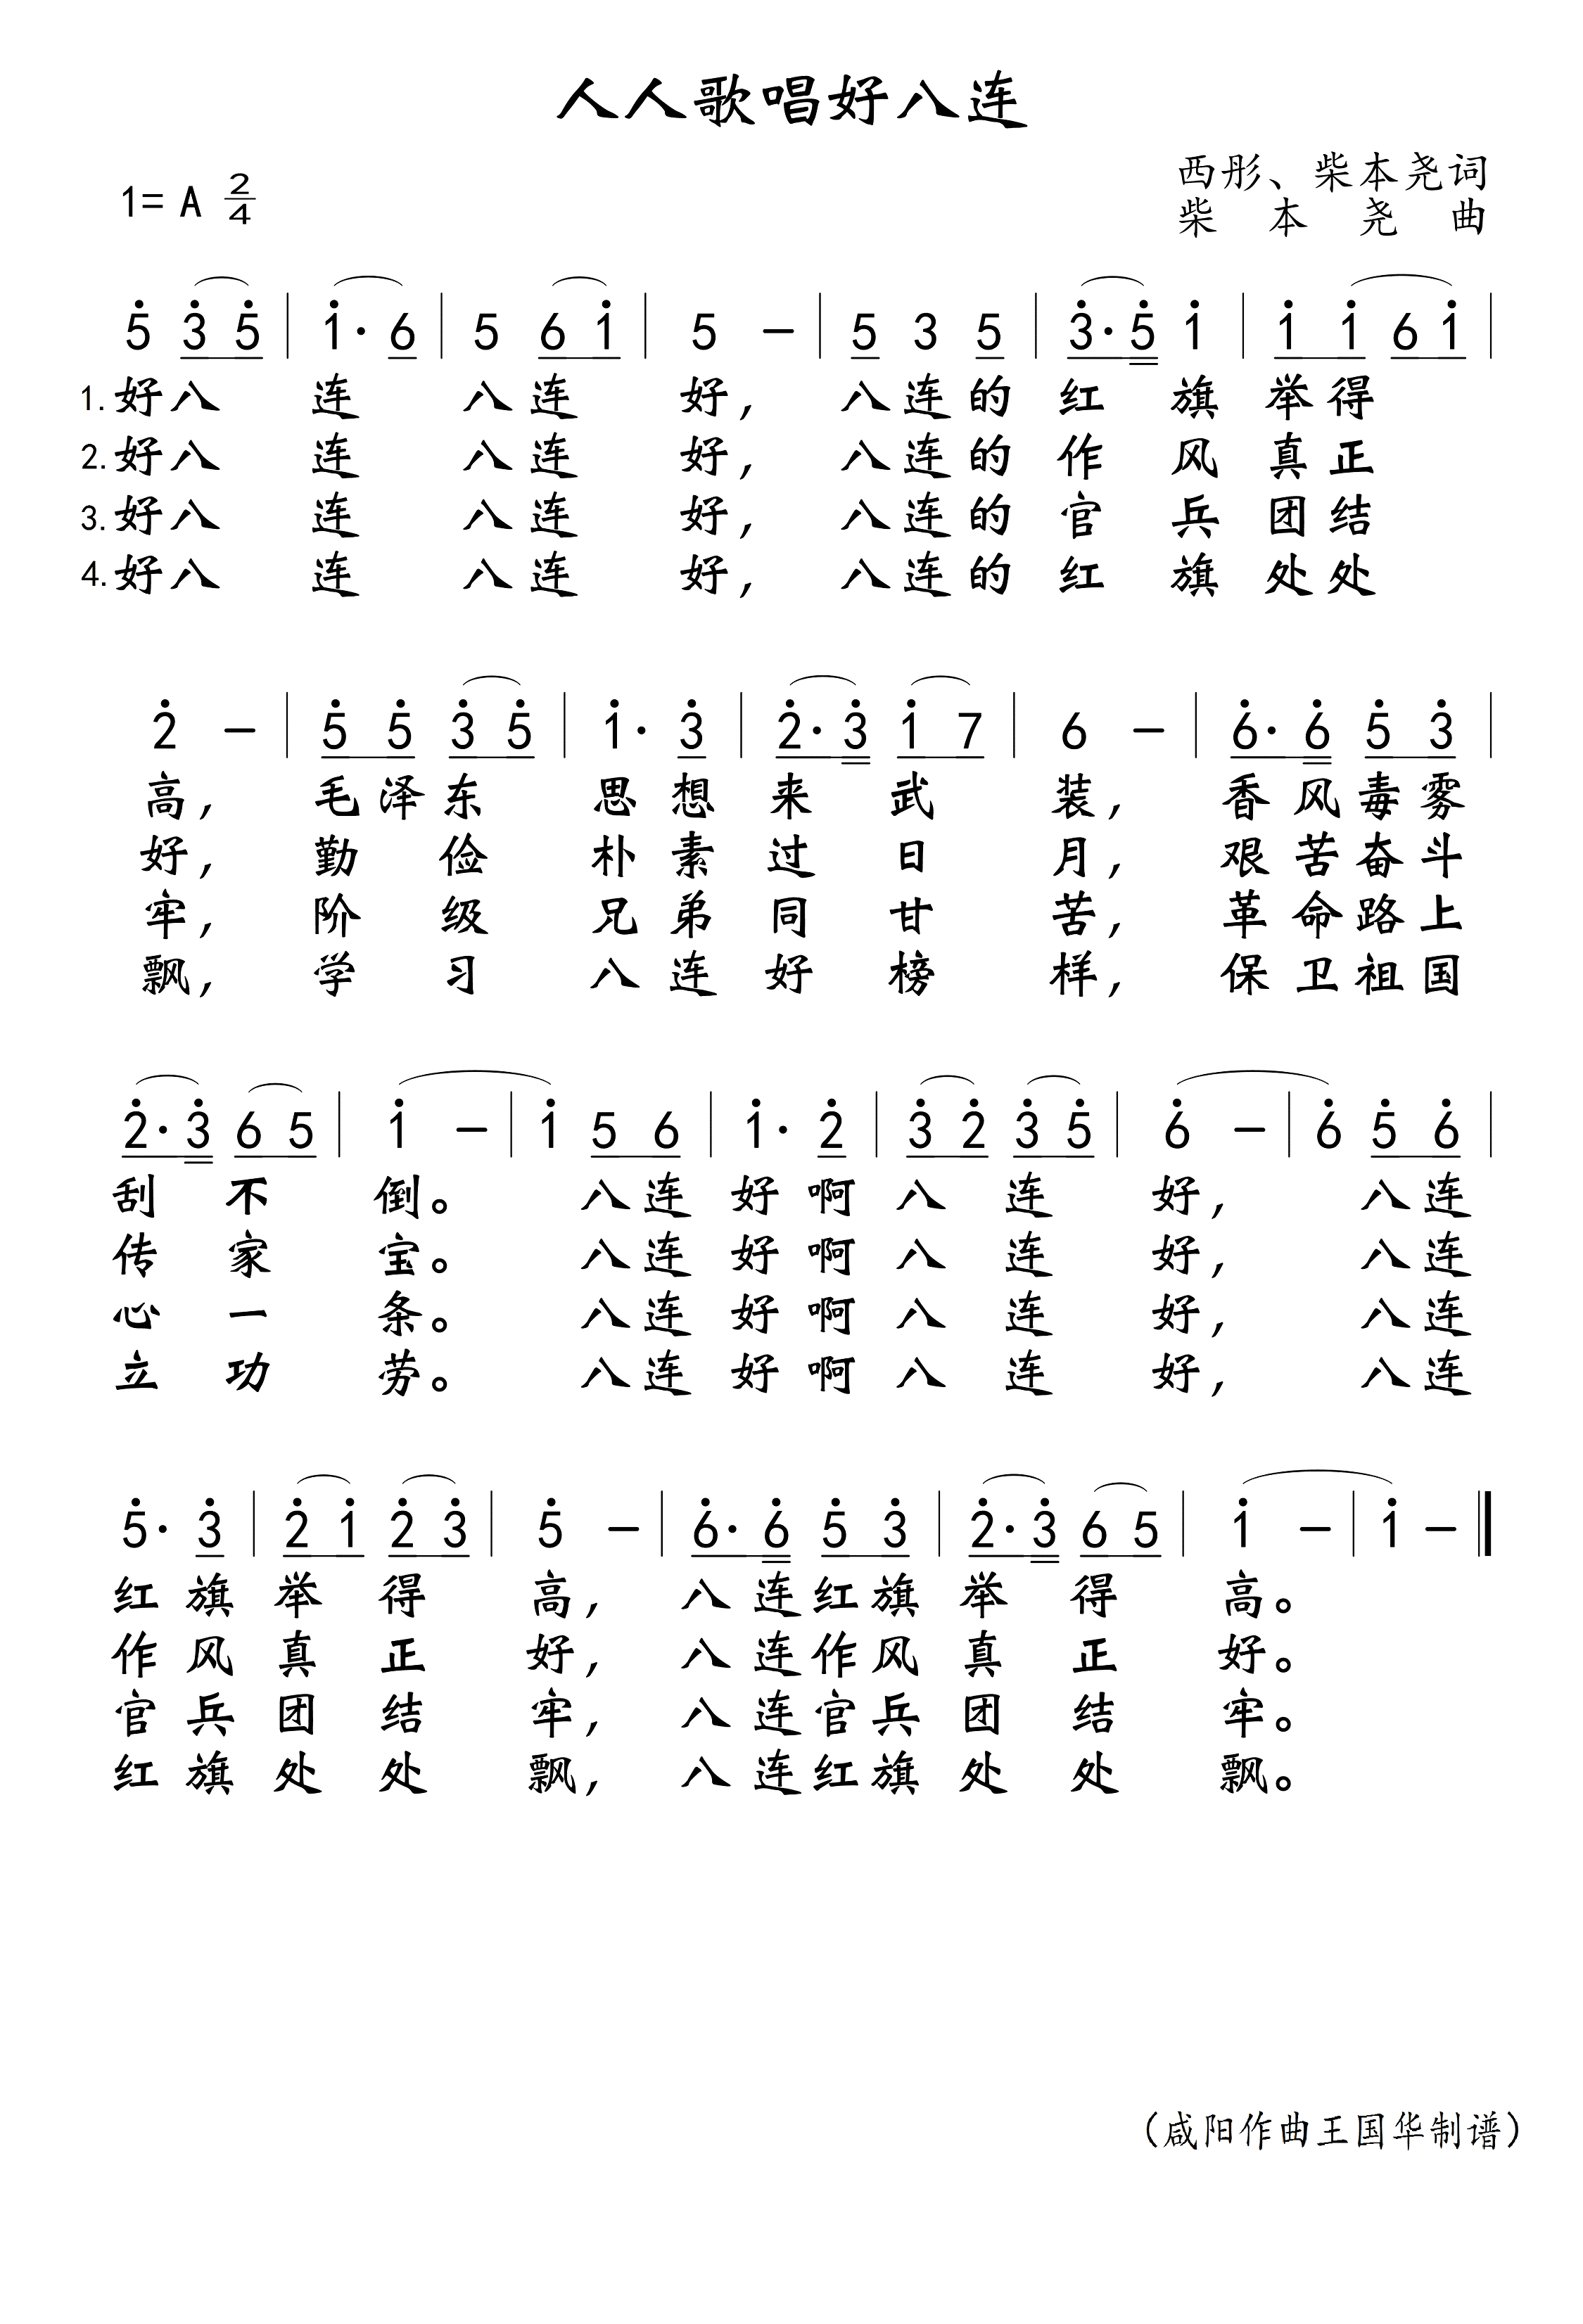 人人歌唱好八连
1= A 2/4
西彤、柴本尧词
柴 本 尧 曲
5̇ 3̇ 5̇ | 1̇· 6 | 5 6 1̇ | 5 － | 5 3 5 | 3̇·5̇ 1̇ | 1̇ 1̇ 6 1̇ |
1.好八 连 八连 好， 八连的 红 旗 举得
2.好八 连 八连 好， 八连的 作 风 真正
3.好八 连 八连 好， 八连的 官 兵 团结
4.好八 连 八连 好， 八连的 红 旗 处处
2̇ － | 5̇ 5̇ 3̇ 5̇ | 1̇· 3̇ | 2̇·3̇ 1̇ 7 | 6 － | 6̇·6̇ 5̇ 3̇ |
高， 毛泽东 思想 来 武 装， 香风毒雾
好， 勤 俭 朴素 过 日 月， 艰苦奋斗
牢， 阶 级 兄弟 同 甘 苦， 革命路上
飘， 学 习 八连 好 榜 样， 保卫祖国
2̇·3̇ 6 5 | 1̇ － | 1̇ 5 6 | 1̇· 2̇ | 3̇ 2̇ 3̇ 5̇ | 6̇ － | 6̇ 5̇ 6̇ |
刮 不 倒。 八连 好啊 八 连 好， 八连
传 家 宝。 八连 好啊 八 连 好， 八连
心 一 条。 八连 好啊 八 连 好， 八连
立 功 劳。 八连 好啊 八 连 好， 八连
5̇· 3̇ | 2̇ 1̇ 2̇ 3̇ | 5̇ － | 6̇·6̇ 5̇ 3̇ | 2̇·3̇ 6 5 | 1̇ － | 1̇ － ‖
红旗 举 得 高， 八连红旗 举 得 高。
作风 真 正 好， 八连作风 真 正 好。
官兵 团 结 牢， 八连官兵 团 结 牢。
红旗 处 处 飘， 八连红旗 处 处 飘。
（咸阳作曲王国华制谱）